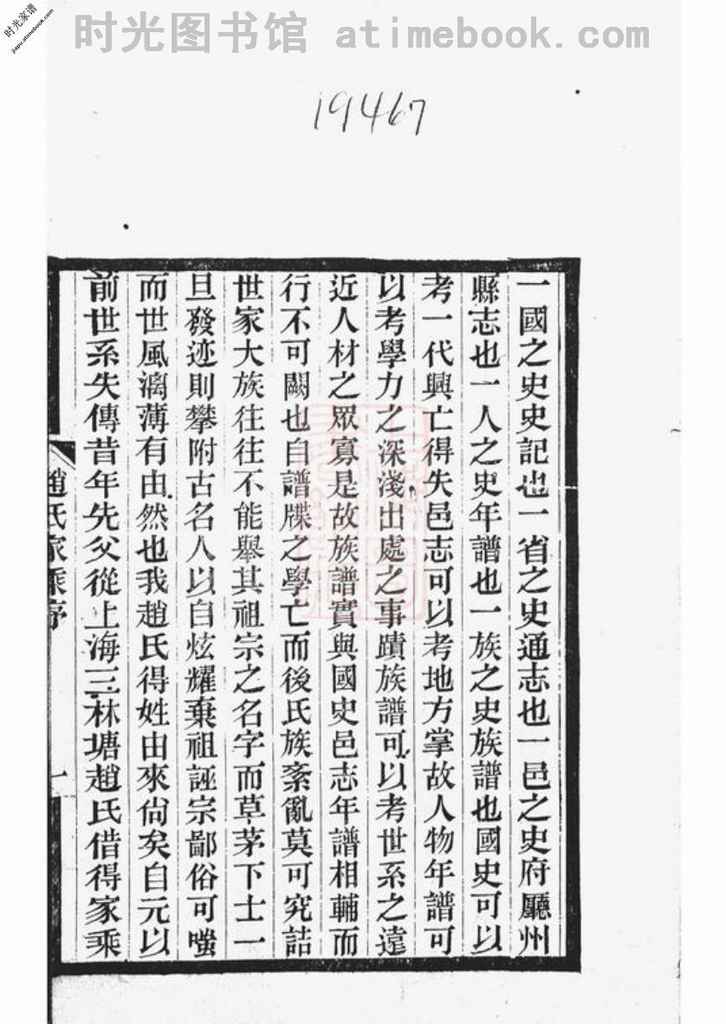 时光家谱
jiapu.atimebook.com
时光图书馆 atimebook.com
19467
一國之史史記也一省之史通志也一邑之史府廳州
縣志也一人之史年譜也一族之史族譜也國史可以
考一代興亡得失邑志可以考地方掌故人物年譜可
以考學力之深淺出處之事蹟族譜可以考世系之遠
近人材之眾寡是故族譜實與國史邑志年譜相輔而
行不可闕也自譜牒之學亡而後氏族紊亂莫可究詰
世家大族往往不能舉其祖宗之名字而草茅下士一
旦發迹則攀附古名人以自炫耀棄祖誣宗鄙俗可嗤
而世風漓薄有由然也我趙氏得姓由來尙矣自元以
前世系失傳昔年先父從上海三林塘趙氏借得家乘
趙氏家乘序
一